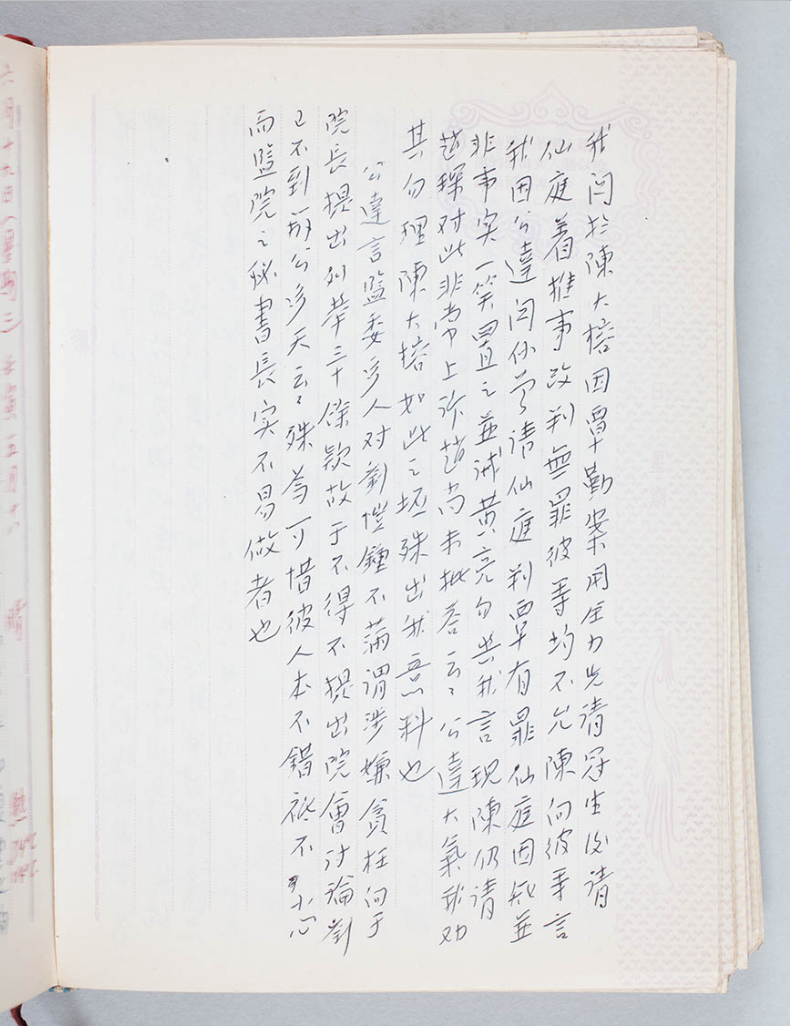 我问於陳大榕因覃勤案用全力先请冠生後请
仙庭着推事改判無罪彼等均不允陳向彼等言
我因公達问你曾请仙庭判覃有罪仙庭因知並
非事实一笑置之並诫黄亮勿與我言现陳仍请
趙琛对此非常上诉趙尚未批答云云公達大氣我劝
其勿理陳大榕如此之坏殊出我意料也
公達言監委多人对劉愷鍾不满谓涉嫌貪枉向于
院長提出列举三十餘款故于不得不提出院會讨論劉
已不到辦公多天云云殊為可惜彼人本不錯祇不小心
而監院之秘書長实不易做者也
六月十 日(星期三
五月
晴